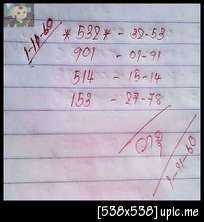 1-11-60
*532* - 32-53
901 - 01-91
514 - 15-14
153 - 27-78
1-11-60
[538x538] upic.me